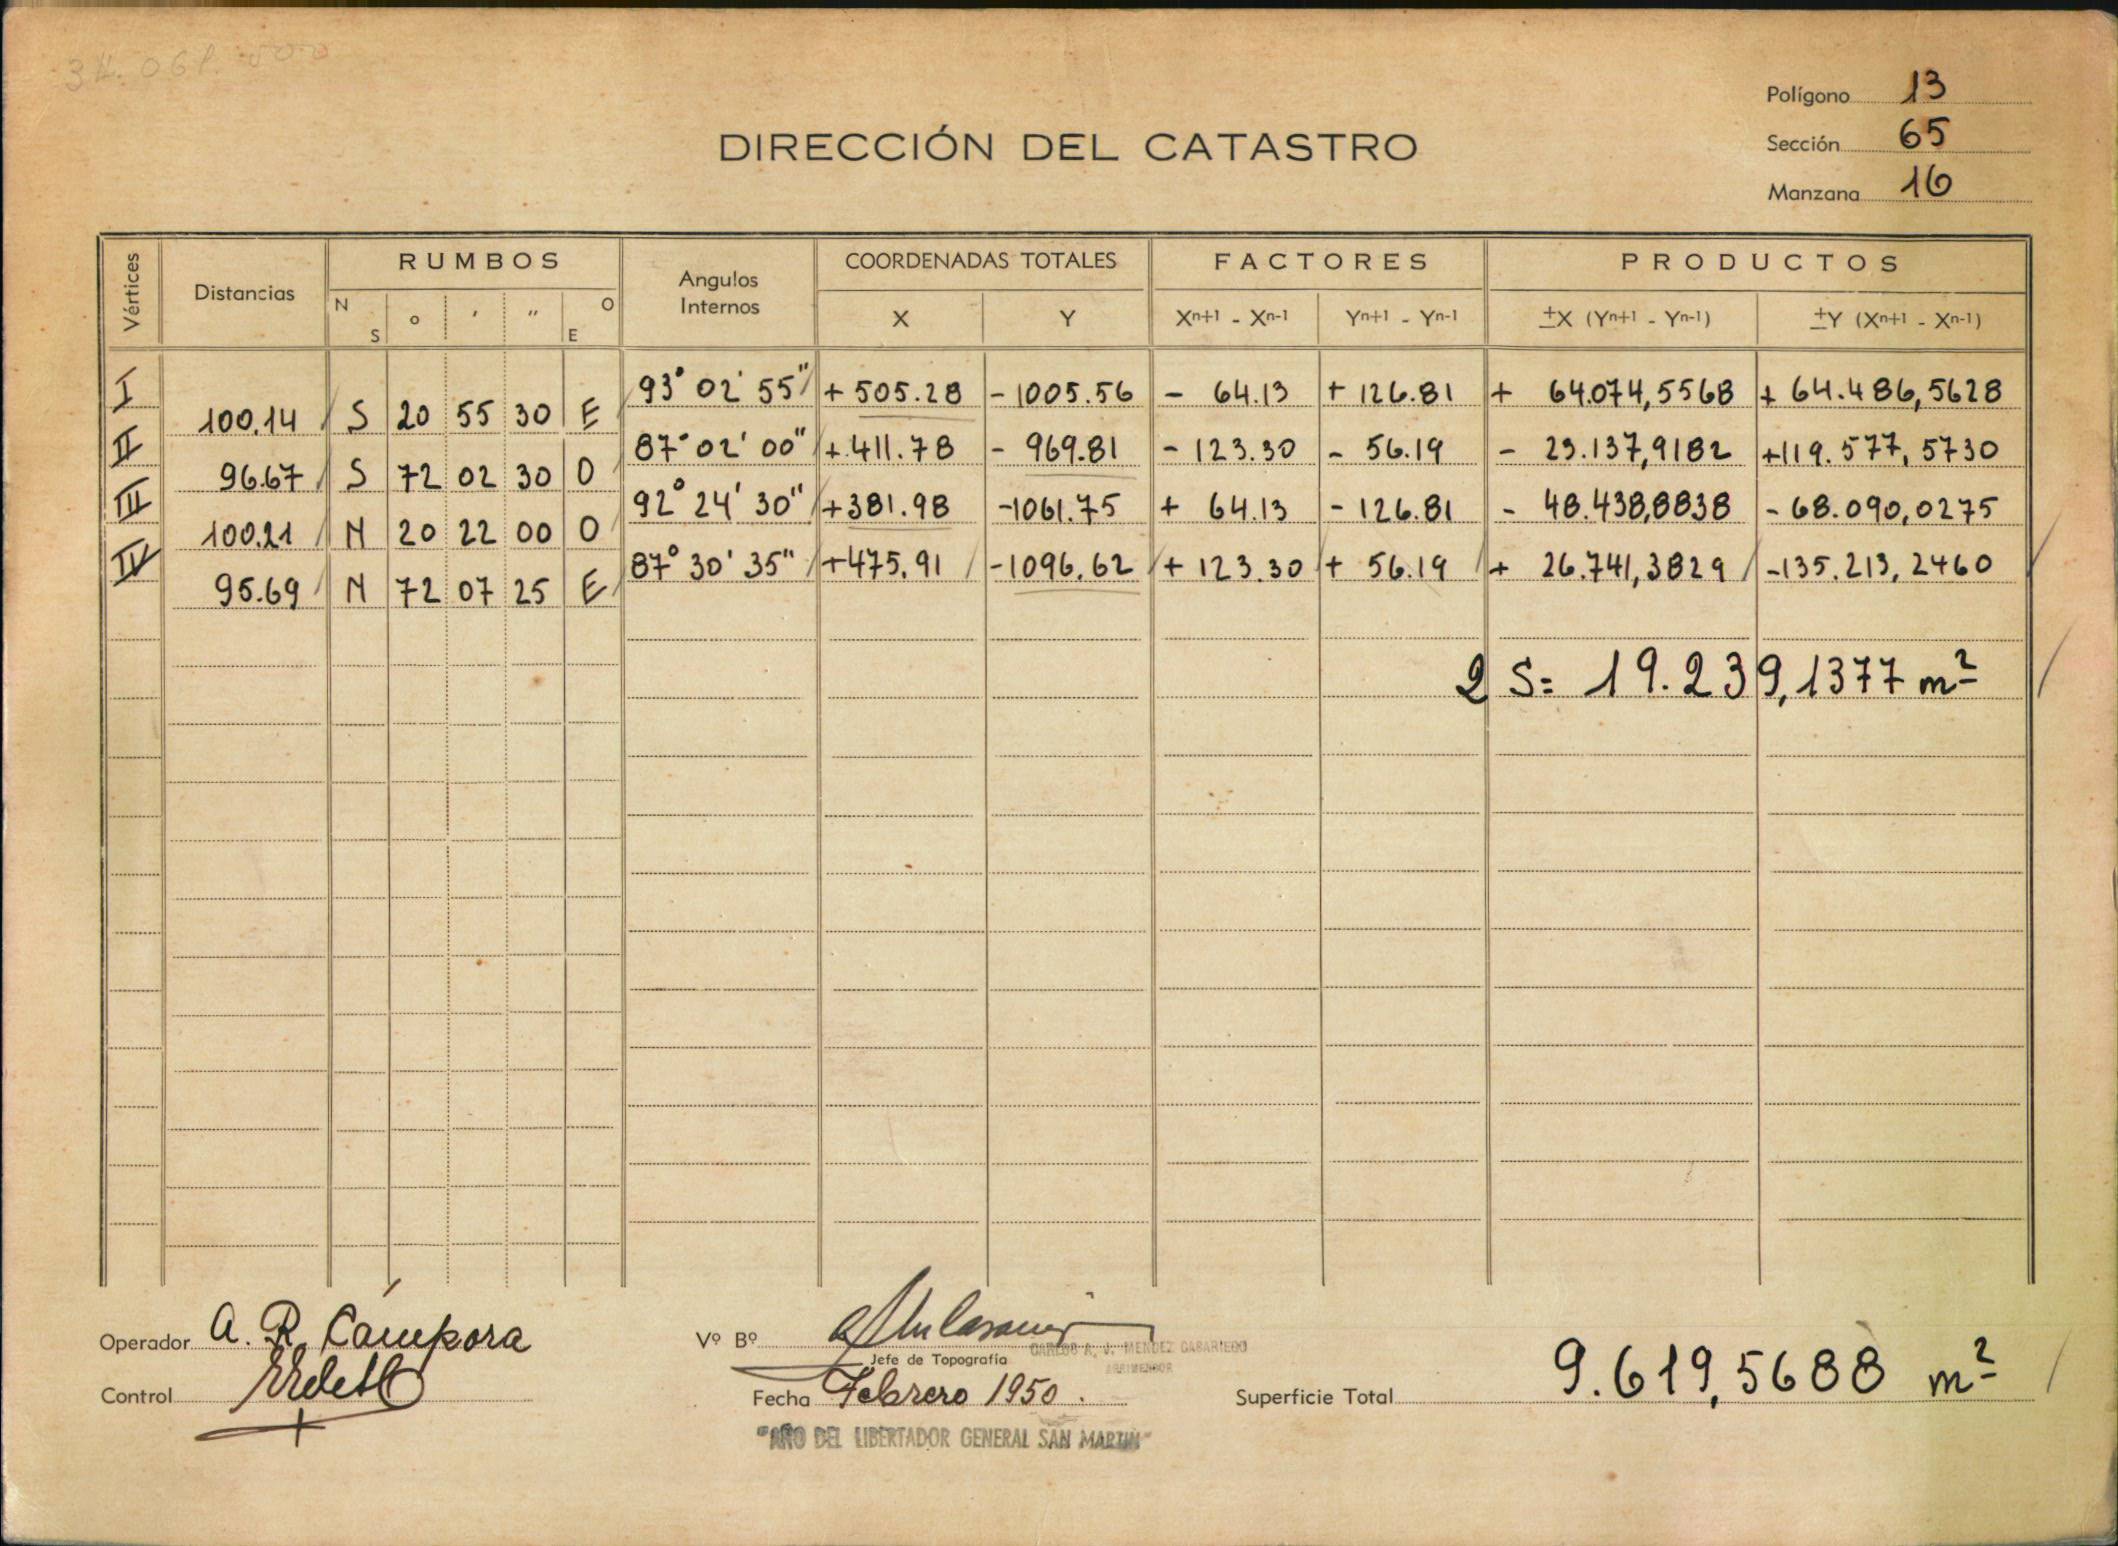 Polígono 13
DIRECCIÓN DEL CATASTRO
Sección 65
Manzana 16
Vértices Distancias RUMBOS Angulos Internos COORDENADAS TOTALES FACTORES PRODUCTOS
N S o ′ ″ O E X Y Xn+1 - Xn-1 Yn+1 - Yn-1 ±X (Yn+1 - Yn-1) ±Y (Xn+1 - Xn-1)
I 93° 02′ 55″ + 505.28 - 1005.56 - 64.13 + 126.81 + 64.074,5568 + 64.486,5628
100.14 S 20 55 30 E
II 87° 02′ 00″ + 411.78 - 969.81 - 123.30 - 56.19 - 23.137,9182 + 119.577,5730
96.67 S 72 02 30 O
III 92° 24′ 30″ + 381.98 - 1061.75 + 64.13 - 126.81 - 48.438,8838 - 68.090,0275
100.21 N 20 22 00 O
IV 87° 30′ 35″ + 475.91 - 1096.62 + 123.30 + 56.19 + 26.741,3829 - 135.213,2460
95.69 N 72 07 25 E
2 S= 19.239,1377 m²
Operador A. R. Cámpora
Vº Bº
CARLOS A. J. MENDEZ CABARIEGO
Jefe de Topografía
AGRIMENSOR
Control
Fecha Febrero 1950.
Superficie Total 9.619,5688 m²
"AÑO DEL LIBERTADOR GENERAL SAN MARTIN"